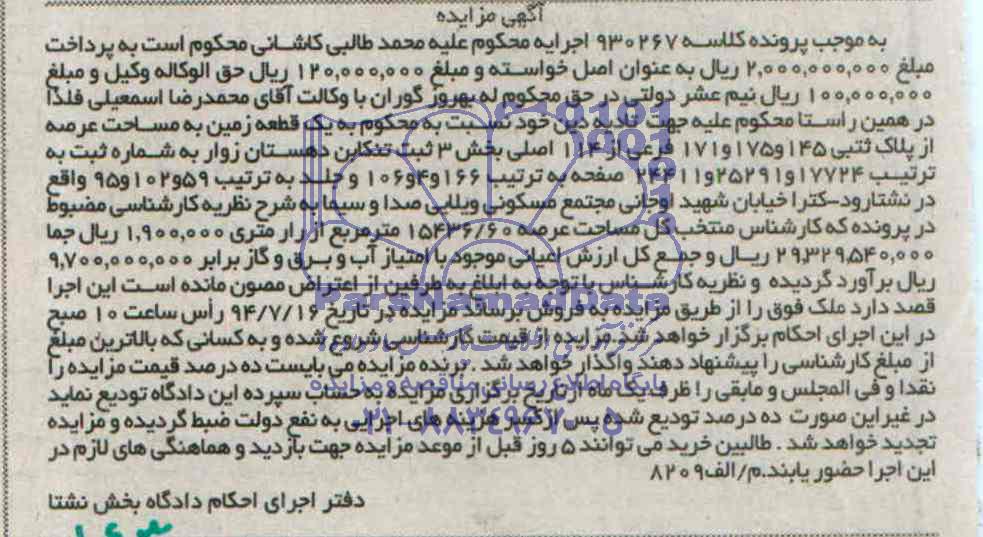 آگهی مزایده
به موجب پرونده کلاسه ۹۳۰۲۶۷ اجرایه محکوم علیه محمد طالبی کاشانی محکوم است به پرداخت
مبلغ ۲,۰۰۰,۰۰۰,۰۰۰ ریال به عنوان اصل خواسته و مبلغ ۱۲۰,۰۰۰,۰۰۰ ریال حق الوکاله وکیل و مبلغ
۱۰۰,۰۰۰,۰۰۰ ریال نیم عشر دولتی در حق محکوم له بهروز گوران با وکالت آقای محمدرضا اسمعیلی فلذا
در همین راستا محکوم علیه جهت تادیه دین خود نسبت به محکوم به یک قطعه زمین به مساحت عرصه
از پلاک ثبتی ۱۴۵و۱۷۵و۱۷۱ فرعی از ۱۱۴ اصلی بخش ۳ ثبت تنکابن دهستان زوار به شماره ثبت به
ترتیب ۱۷۷۲۴و۲۵۲۹۱و۲۴۴۱۱ صفحه به ترتیب ۱۶۶و۴و۱۰۶ و جلد به ترتیب ۵۹و۱۰۲و۹۵ واقع
در نشتارود-کترا خیابان شهید اوحانی مجتمع مسکونی ویلایی صدا و سیما به شرح نظریه کارشناسی مضبوط
در پرونده که کارشناس منتخب کل مساحت عرصه ۱۵۴۳۶/۶۰ مترمربع از قرار متری ۱,۹۰۰,۰۰۰ ریال جما
۲۹,۳۲۹,۵۴۰,۰۰۰ ریال و جمع کل ارزش اعیانی موجود با امتیاز آب و برق و گاز برابر ۹,۷۰۰,۰۰۰,۰۰۰
ریال برآورد گردیده و نظریه کارشناس با توجه به ابلاغ به طرفین از اعتراض مصون مانده است این اجرا
قصد دارد ملک فوق را از طریق مزایده به فروش برساند مزایده در تاریخ ۹۴/۷/۱۶ رأس ساعت ۱۰ صبح
در این اجرای احکام برگزار خواهد شد مزایده از قیمت کارشناسی شروع شده و به کسانی که بالاترین مبلغ
از مبلغ کارشناسی را پیشنهاد دهند واگذار خواهد شد . برنده مزایده می بایست ده درصد قیمت مزایده را
نقدا و فی المجلس و مابقی را ظرف یک ماه از تاریخ برگزاری مزایده به حساب سپرده این دادگاه تودیع نماید
در غیر این صورت ده درصد تودیع شده پس از کسر هزینه های اجرایی به نفع دولت ضبط گردیده و مزایده
تجدید خواهد شد . طالبین خرید می توانند ۵ روز قبل از موعد مزایده جهت بازدید و هماهنگی های لازم در
این اجرا حضور یابند.م/الف۸۲۰۹
دفتر اجرای احکام دادگاه بخش نشتا
ParsNamadData
پایگاه اطلاع رسانی مناقصه و مزایده
۰۲۱-۸۸۳۴۹۶۷۰-۵